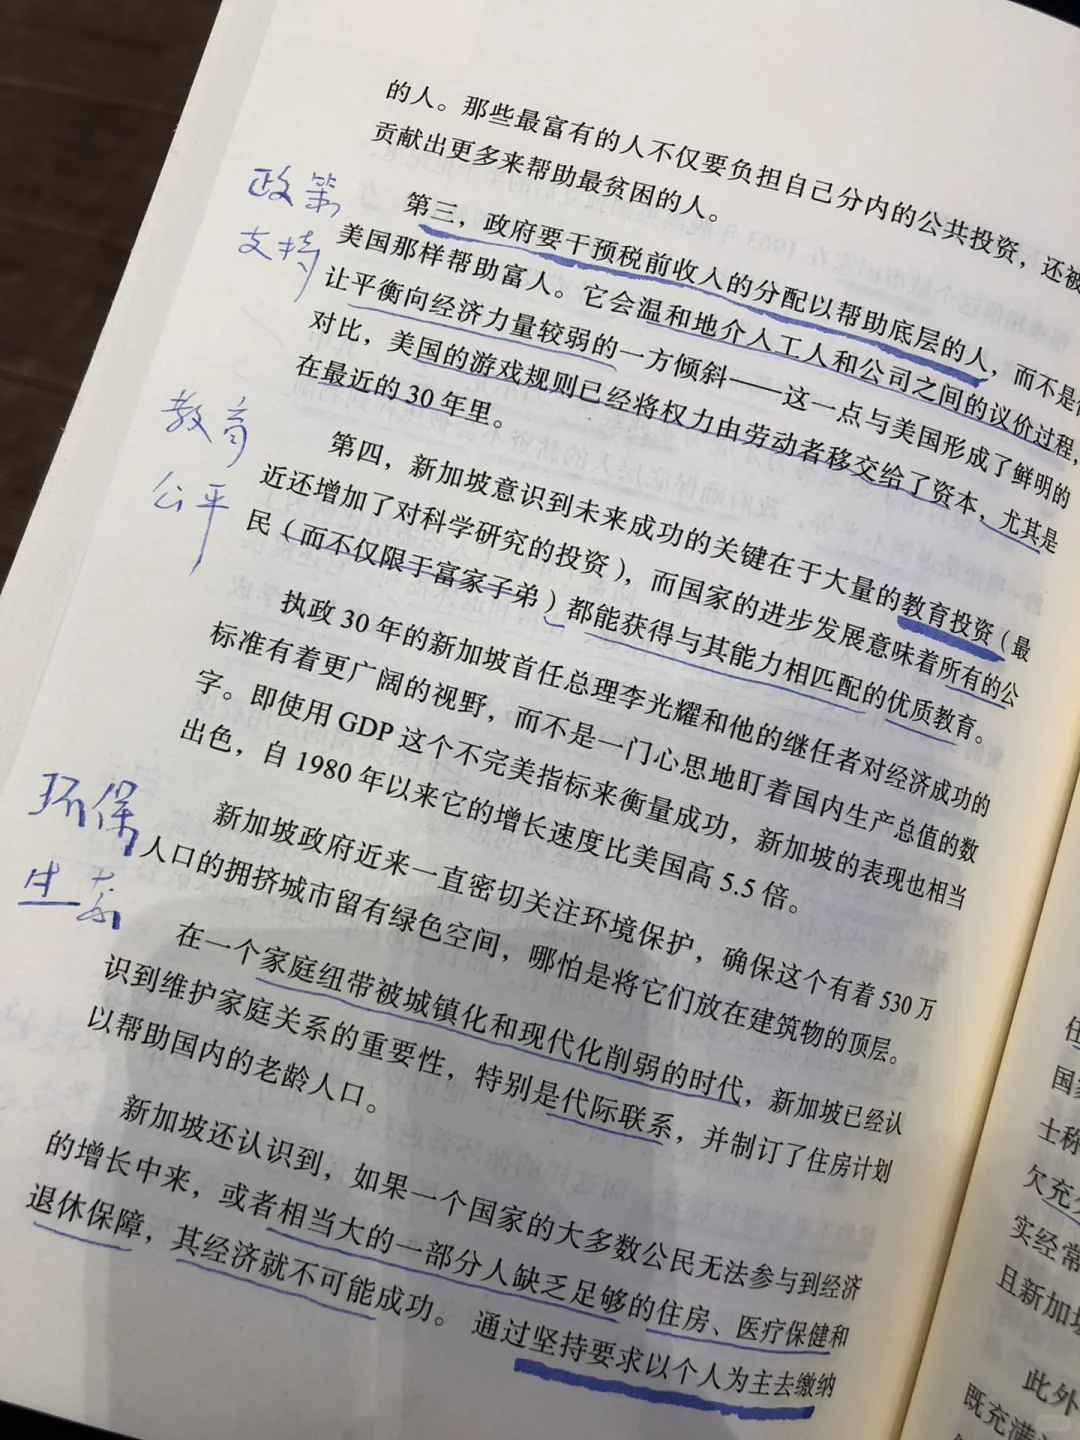 的人。那些最富有的人不仅要负担自己分内的公共投资，还被
贡献出更多来帮助最贫困的人。
政策
支持
第三，政府要干预税前收入的分配以帮助底层的人，而不是像
美国那样帮助富人。它会温和地介入工人和公司之间的议价过程，
让平衡向经济力量较弱的一方倾斜——这一点与美国形成了鲜明的
对比，美国的游戏规则已经将权力由劳动者移交给了资本，尤其是
在最近的 30 年里。
教育
公平
第四，新加坡意识到未来成功的关键在于大量的教育投资（最
近还增加了对科学研究的投资），而国家的进步发展意味着所有的公
民（而不仅限于富家子弟）都能获得与其能力相匹配的优质教育。
执政 30 年的新加坡首任总理李光耀和他的继任者对经济成功的
标准有着更广阔的视野，而不是一门心思地盯着国内生产总值的数
字。即使用 GDP 这个不完美指标来衡量成功，新加坡的表现也相当
出色，自 1980 年以来它的增长速度比美国高 5.5 倍。
环保
生态
新加坡政府近来一直密切关注环境保护，确保这个有着 530 万
人口的拥挤城市留有绿色空间，哪怕是将它们放在建筑物的顶层。
在一个家庭纽带被城镇化和现代化削弱的时代，新加坡已经认
识到维护家庭关系的重要性，特别是代际联系，并制订了住房计划
以帮助国内的老龄人口。
新加坡还认识到，如果一个国家的大多数公民无法参与到经济
的增长中来，或者相当大的一部分人缺乏足够的住房、医疗保健和
退休保障，其经济就不可能成功。通过坚持要求以个人为主去缴纳
国
士称
欠充
实经常
且新加坡
此外
既充满